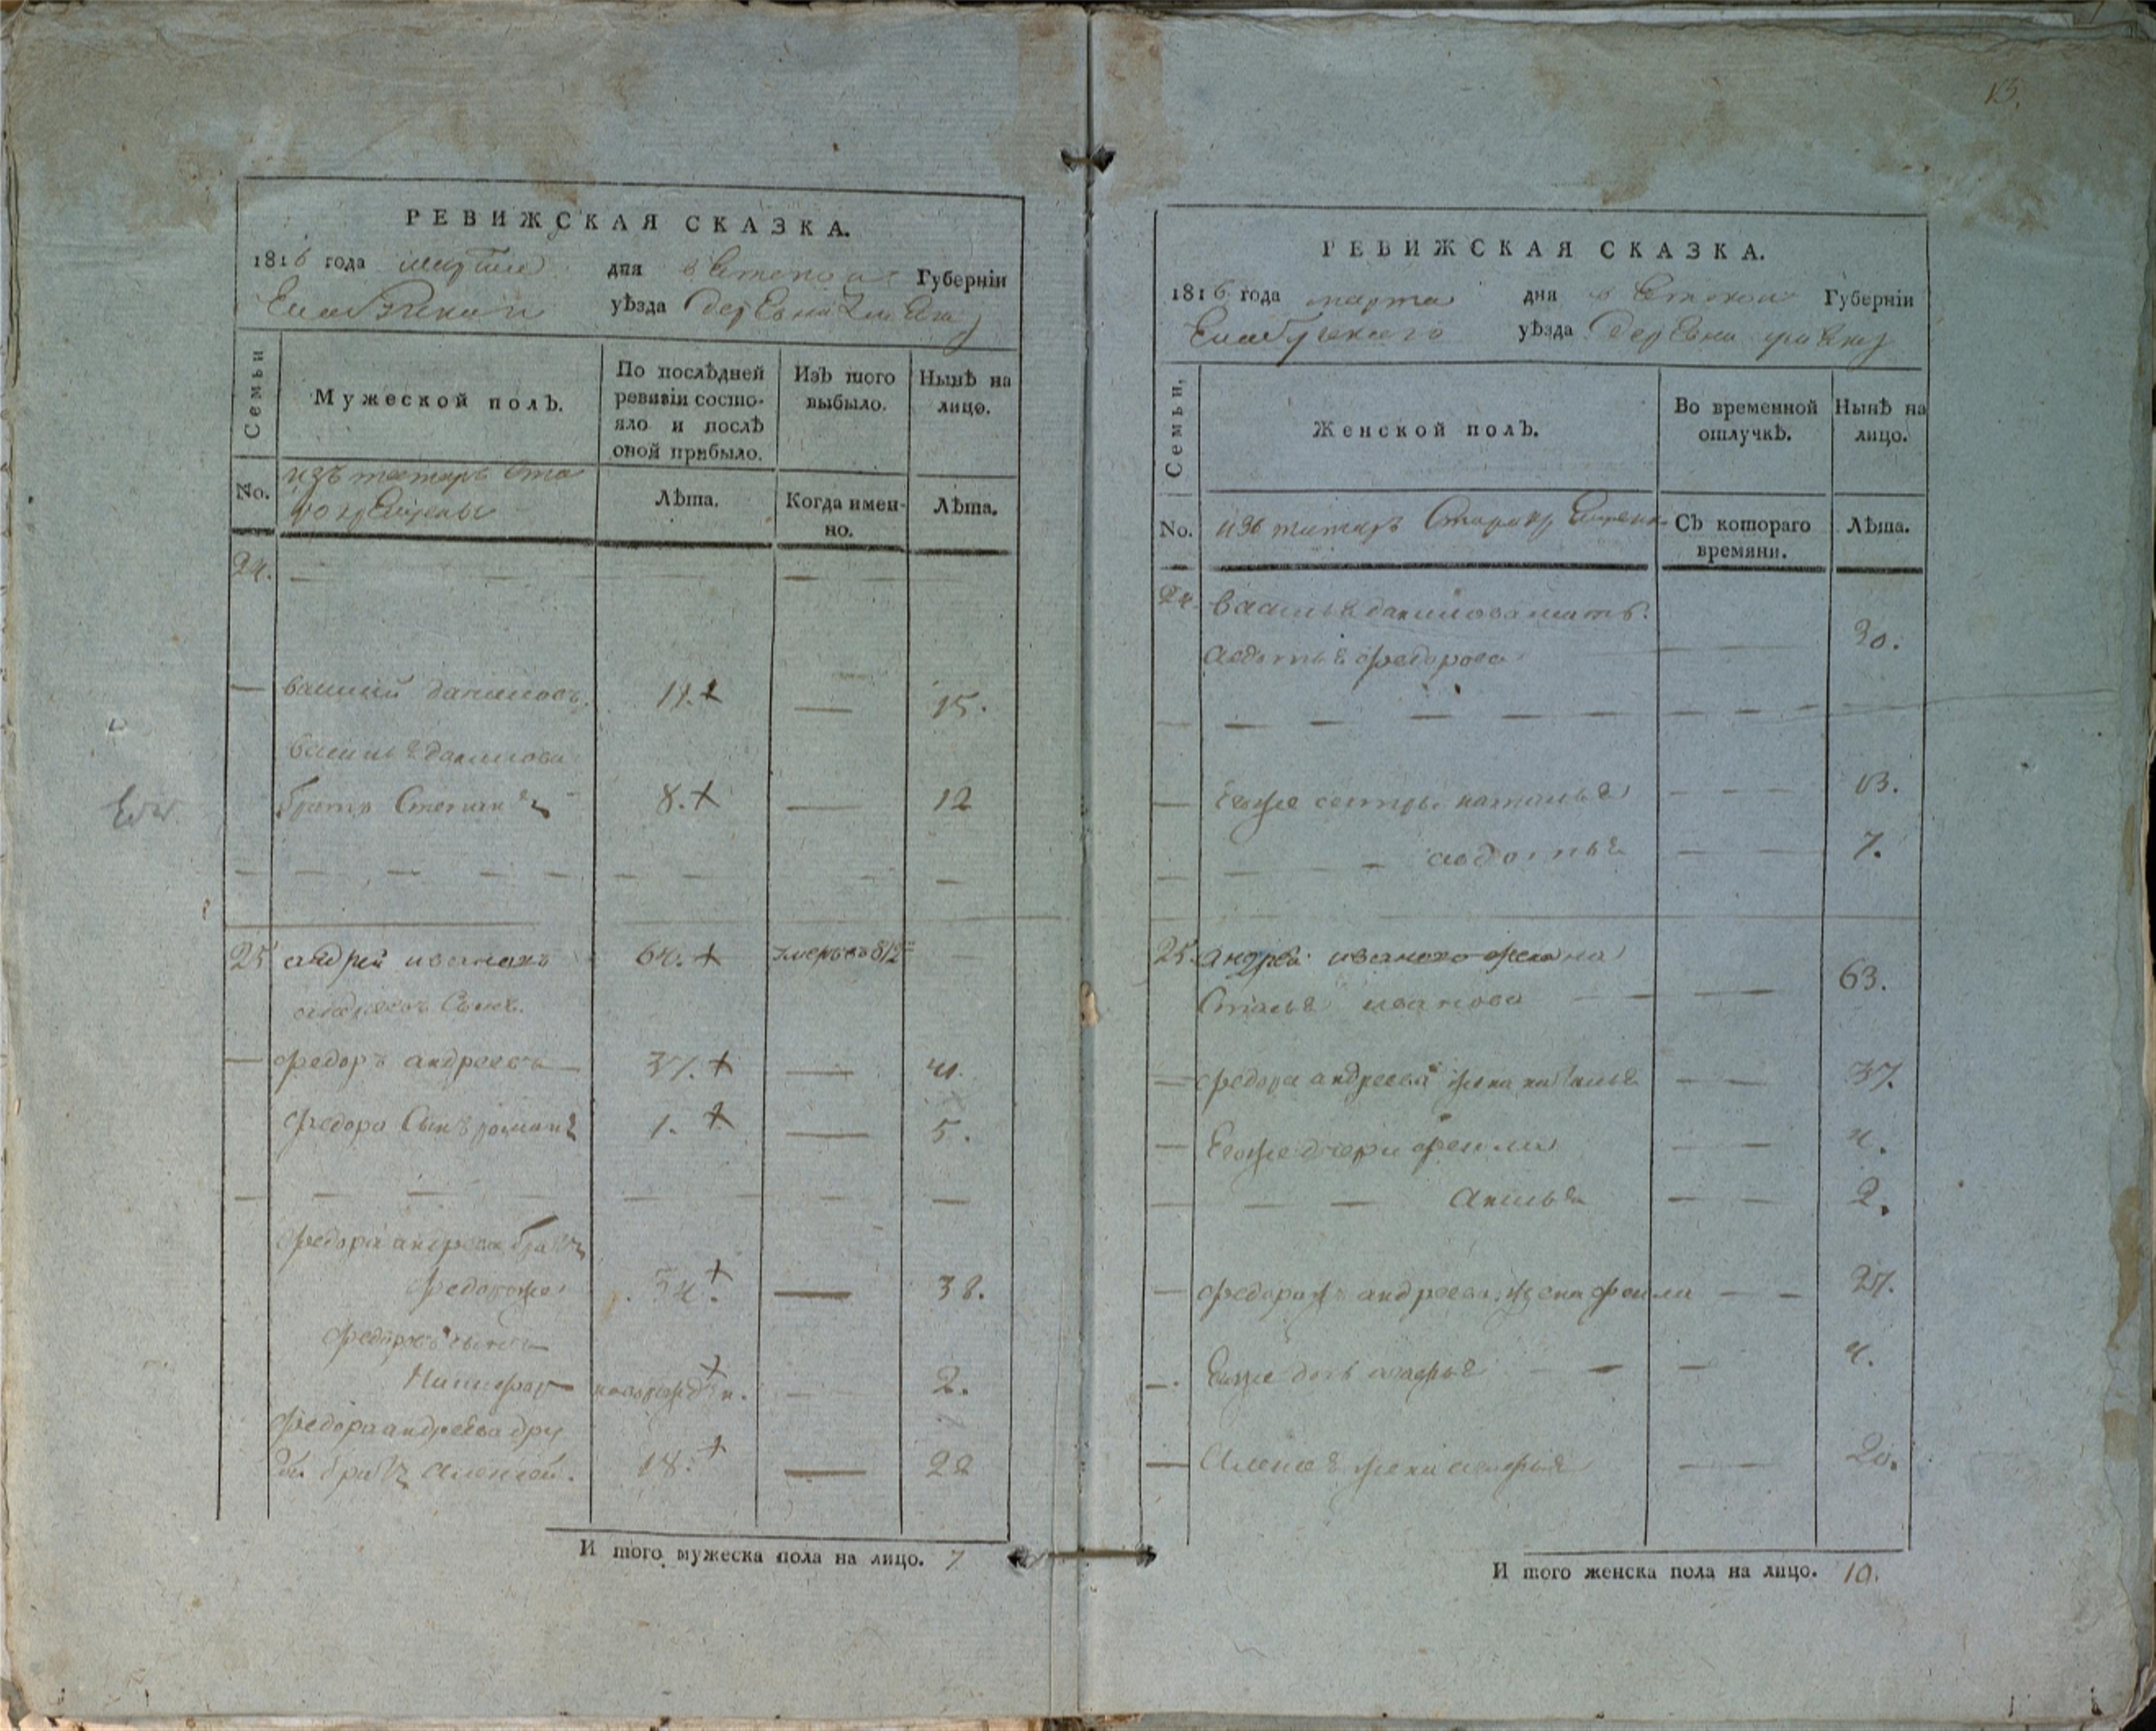 РЕВИЖСКАЯ СКАЗКА.
1816 года марта дня вятской Губерніи
уѣзда деревни
Семьи
Мужеской полъ.
По послѣдней ревизіи состояло и послѣ оной прибыло.
Изъ того выбыло.
Нынѣ на лицо.
No.
изъ татаръ ста
рокрещены
Лѣта.
Когда именно.
Лѣта.
24.
василий даниловъ. 11. + 15.
василья данилова
братъ Степанъ 8. + 12
25 андрей ивановъ 64. + умеръ въ 812
андреевъ Сынъ.
федоръ андреевъ 37. + 41.
федора Сынъ романъ 1. + 5.
федора андреева братъ
федоръже 34. + 38.
федоровъ сынъ
Никифор новорожден. + 2.
федора андреева дру
гой братъ алексей. 18. + 22
И того мужеска пола на лицо. 7
13.
РЕВИЖСКАЯ СКАЗКА.
1816 года марта дня вятской Губерніи
Елабужского уѣзда деревни
Семьи,
Женской полъ.
Во временной отлучкѣ.
Нынѣ на лицо.
No.
изъ татаръ Старокрещены
Съ котораго времяни.
Лѣта.
24. василья данилова мать.
авдотья федорова 30.
Егоже сестры наталья 13.
авдотья 7.
25. андрея иванова жена
иванова 63.
федора андреева жена наталья 37.
Егоже дочери фекла 4.
акилина 2.
андреева жена фекла 27.
Егоже дочь 4.
Алексея жена 20.
И того женска пола на лицо. 10.